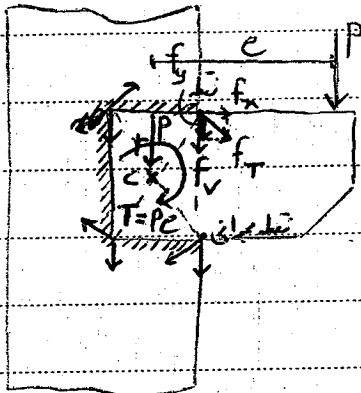 e
P
f_y
f_x
P
f_T
f_v
C
T=Pe